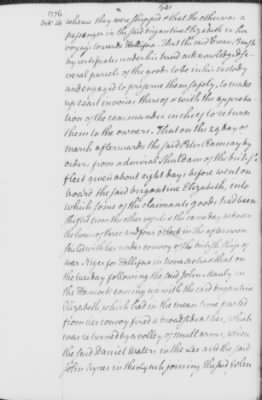 1776
Oct. 14
741
whence they were shipped & that the other was a
passenger in the said brigantine Elizabeth in her
voyage towards Hallifax. That the said Crean Brush
by certificates under his hand acknowledged
several parcels of the goods to be in his custody
and engaged to preserve them safely, to make
up exact invoices thereof & with the approba-
tion of the commander in chief to return
them to the owners. That on the 29 day of
march afterwards the said Peter Ramsay by
orders from admiral Shuldam of the british
fleet given about eight days before went on
board the said brigantine Elizabeth, into
which some of the claimants goods had been
shifted from the other vessels & the same day between
the hours of three and four o'clock in the afternoon
sailed with her under convoy of the british ship of
war Niger for Hallifax in nova scotia that on
the tuesday following the said John Manly in
the Hancock coming up with the said brigantine
Elizabeth, which had in the mean time parted
from her convoy fired a broadside at her, which
was returned by a volley of small arms, when
the said Daniel Waters in the Lee and the said
John Ayres in the Lynch joining the said John